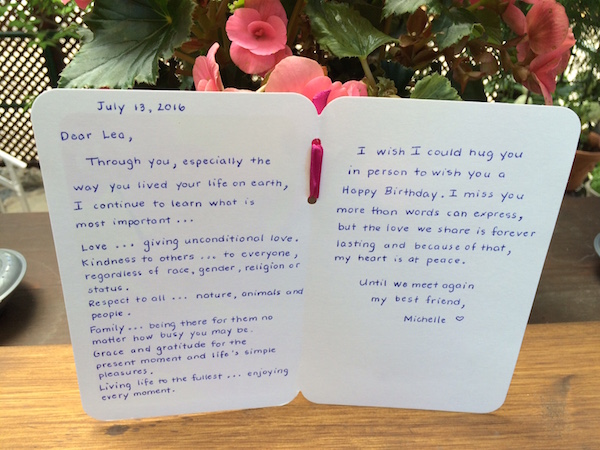 July 13, 2016
Dear Lea,
Through you, especially the
way you lived your life on earth,
I continue to learn what is
most important ...
Love ... giving unconditional love.
Kindness to others ... to everyone,
regardless of race, gender, religion or
status.
Respect to all ... nature, animals and
people.
Family ... being there for them no
matter how busy you may be.
Grace and gratitude for the
present moment and life's simple
pleasures.
Living life to the fullest ... enjoying
every moment.
I wish I could hug you
in person to wish you a
Happy Birthday. I miss you
more than words can express,
but the love we share is forever
lasting and because of that,
my heart is at peace.
Until we meet again
my best friend,
Michelle ♡